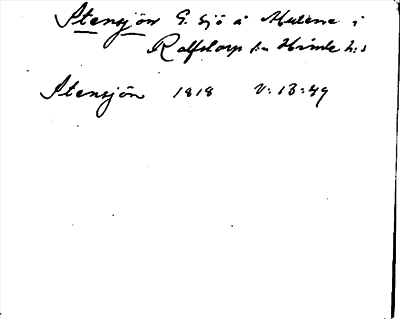 Stensjön G. sjö å Mulene i
Rolfstorp sn Himle h:d
Stensjön 1818 V: 13:49